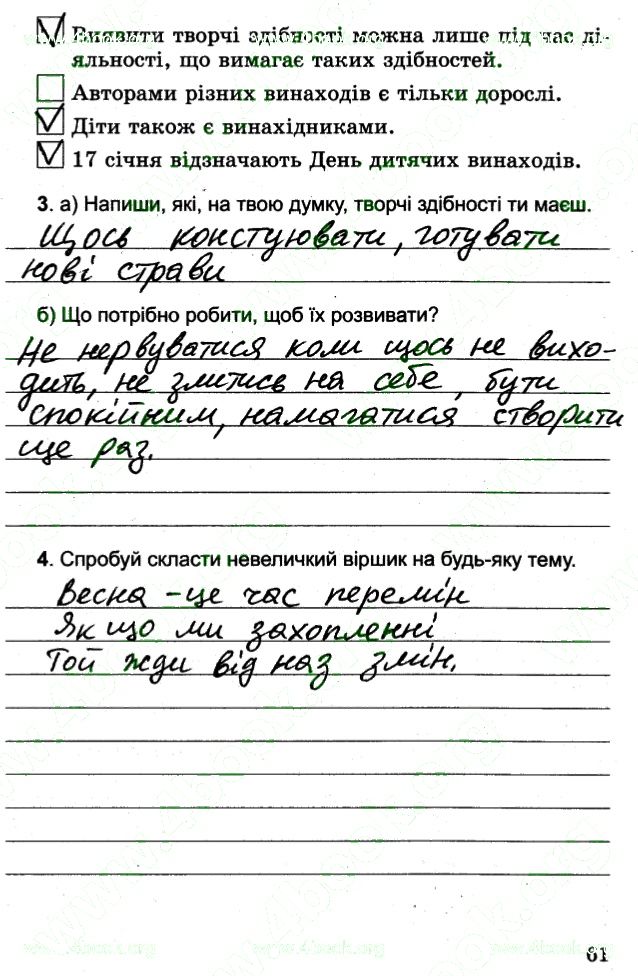 Виявити творчі здібності можна лише під час ді-
яльності, що вимагає таких здібностей.
Авторами різних винаходів є тільки дорослі.
Діти також є винахідниками.
17 січня відзначають День дитячих винаходів.
3. а) Напиши, які, на твою думку, творчі здібності ти маєш.
Щось констуювати, готувати
нові страви
б) Що потрібно робити, щоб їх розвивати?
Не нервуватися коли щось не вихо-
дить, не злитись на себе, бути
спокійним, намагатися створити
ще раз.
4. Спробуй скласти невеличкий віршик на будь-яку тему.
Весна - це час перемін
Як що ми захопленні
Той жди від наз змін.
www.4book.org www.4book.org www.4book.org
61